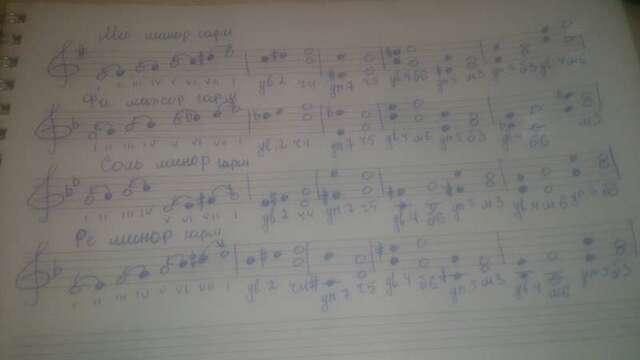 Ми минор гарм
I II III IV V VI VII I ув 2 ч4 ум 7 ч5 ув 4 б6 ум 5 м3
Фа минор гарм
I II III IV V VI VII I ув 2 ч4 ум 7 ч5 ув 4 м6 ум 5 б3 б6 м3
Соль минор гарм
I II III IV V VI VII I ув 2 ч4 ч5 ув 4 б6 ум 5 м3 ув 4 м6
Ре минор гарм
I II III IV V VI VII I ув 2 ч4 ум 7 ч5 ув 4 б6 ум 5 м3 ув 4 м6 ум 5 б3